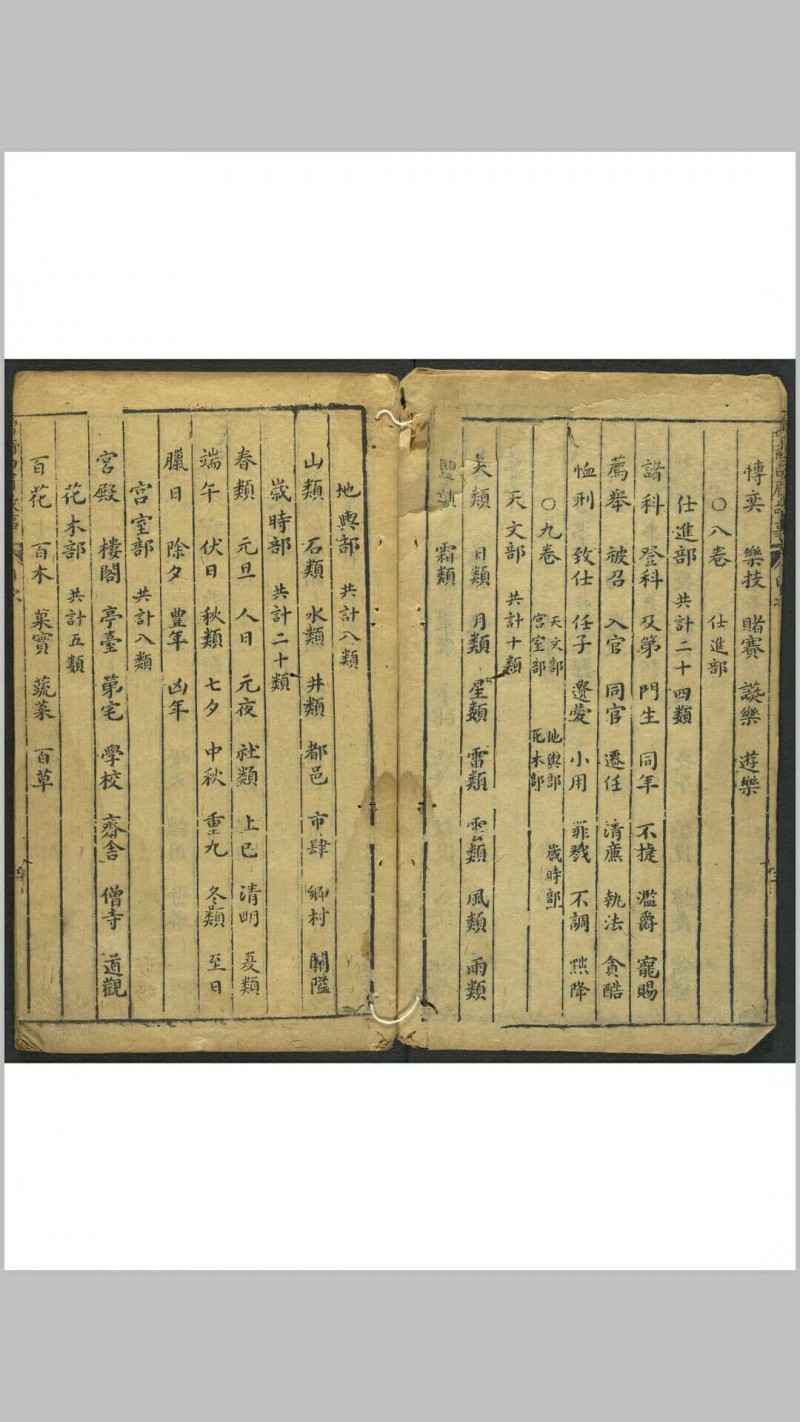 博奕 樂技 賭賽 謔樂 遊樂
○八卷 仕進部
仕進部 共計二十四類
諸科 登科 及第 門生 同年 不捷 濫爵 寵賜
薦舉 被召 入官 同官 遷任 清廉 執法 貪酷
恤刑 致仕 任子 遺愛 小用 罪戮 不調 黜降
○九卷 天文部 地輿部 歲時部
宮室部 花木部
天文部 共計十類
天類 日類 月類 星類 雷類 雲類 風類 雨類
霜類
地輿部 共計八類
山類 石類 水類 井類 都邑 市肆 鄉村 關隘
歲時部 共計二十類
春類 元旦 人日 元夜 社類 上巳 清明 夏類
端午 伏日 秋類 七夕 中秋 重九 冬類 至日
臘日 除夕 豐年 凶年
宮室部 共計八類
宮殿 樓閣 亭臺 第宅 學校 齋舍 僧寺 道觀
花木部 共計五類
百花 百木 菓實 蔬菜 百草